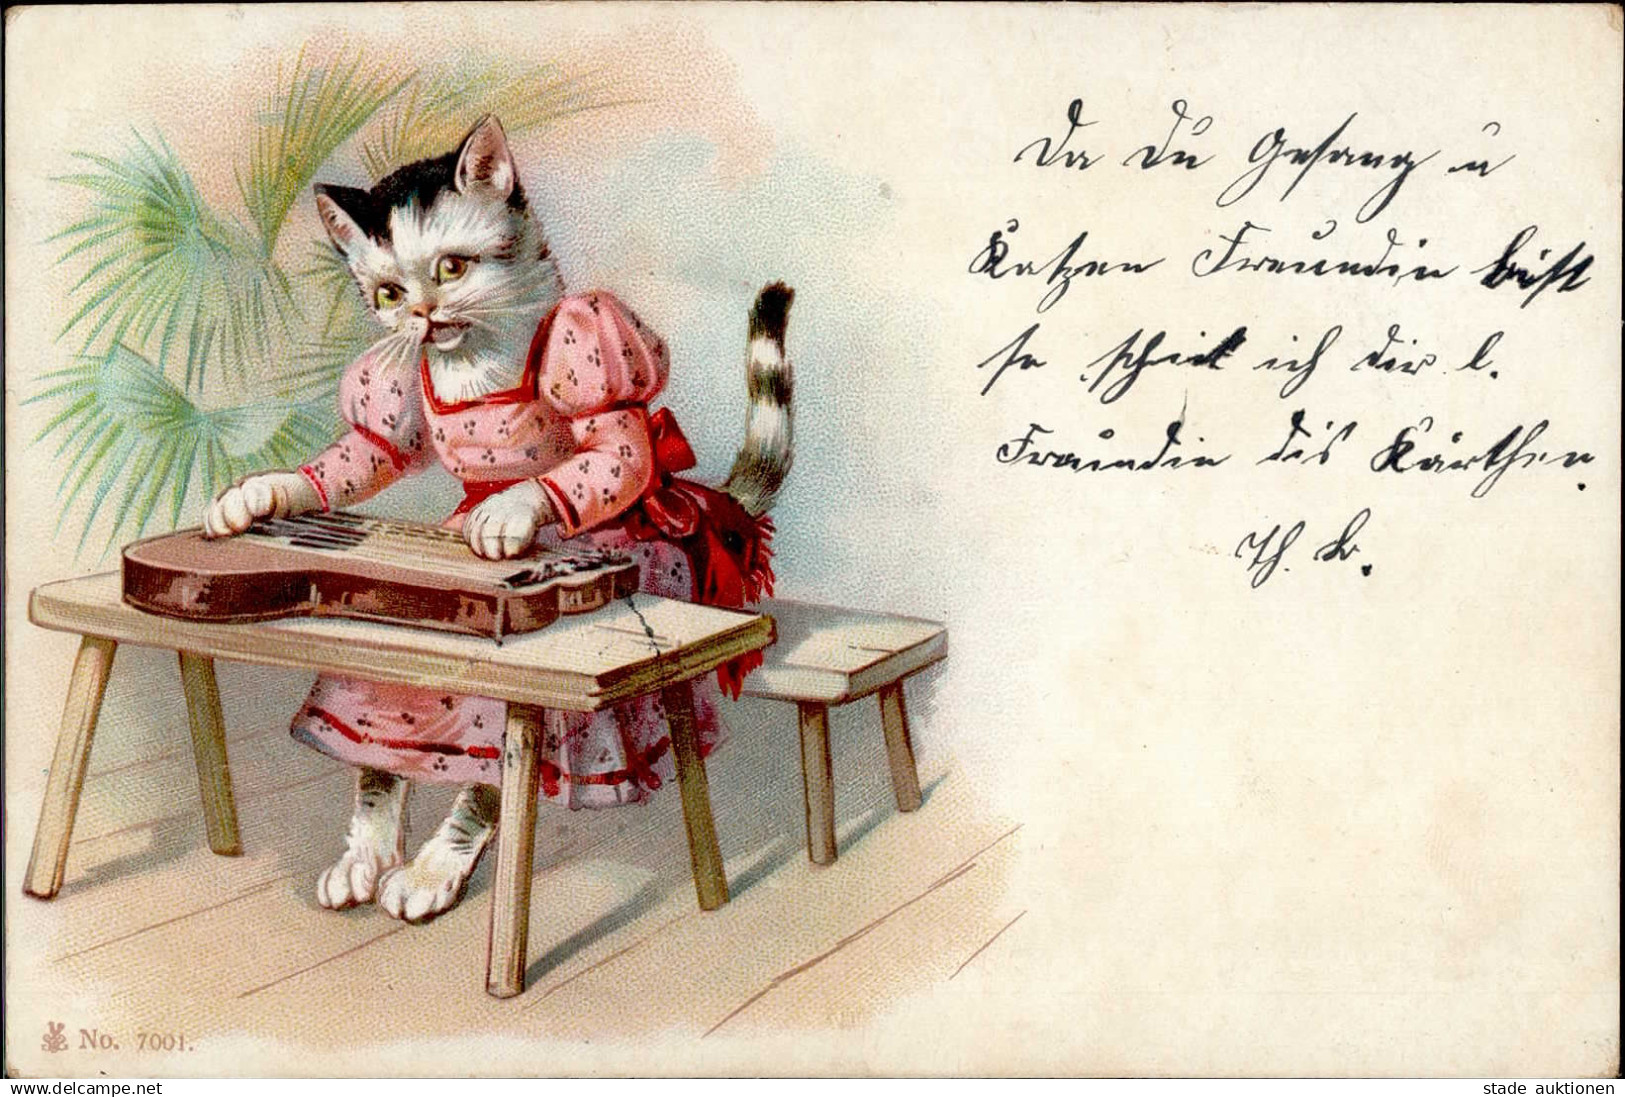 Da Du Gesang u
Katzen Freundin bist
so schick ich dir l.
Freundin dis Kärthen.
Th. Br.
No. 7001.
www.delcampe.net
stade auktionen